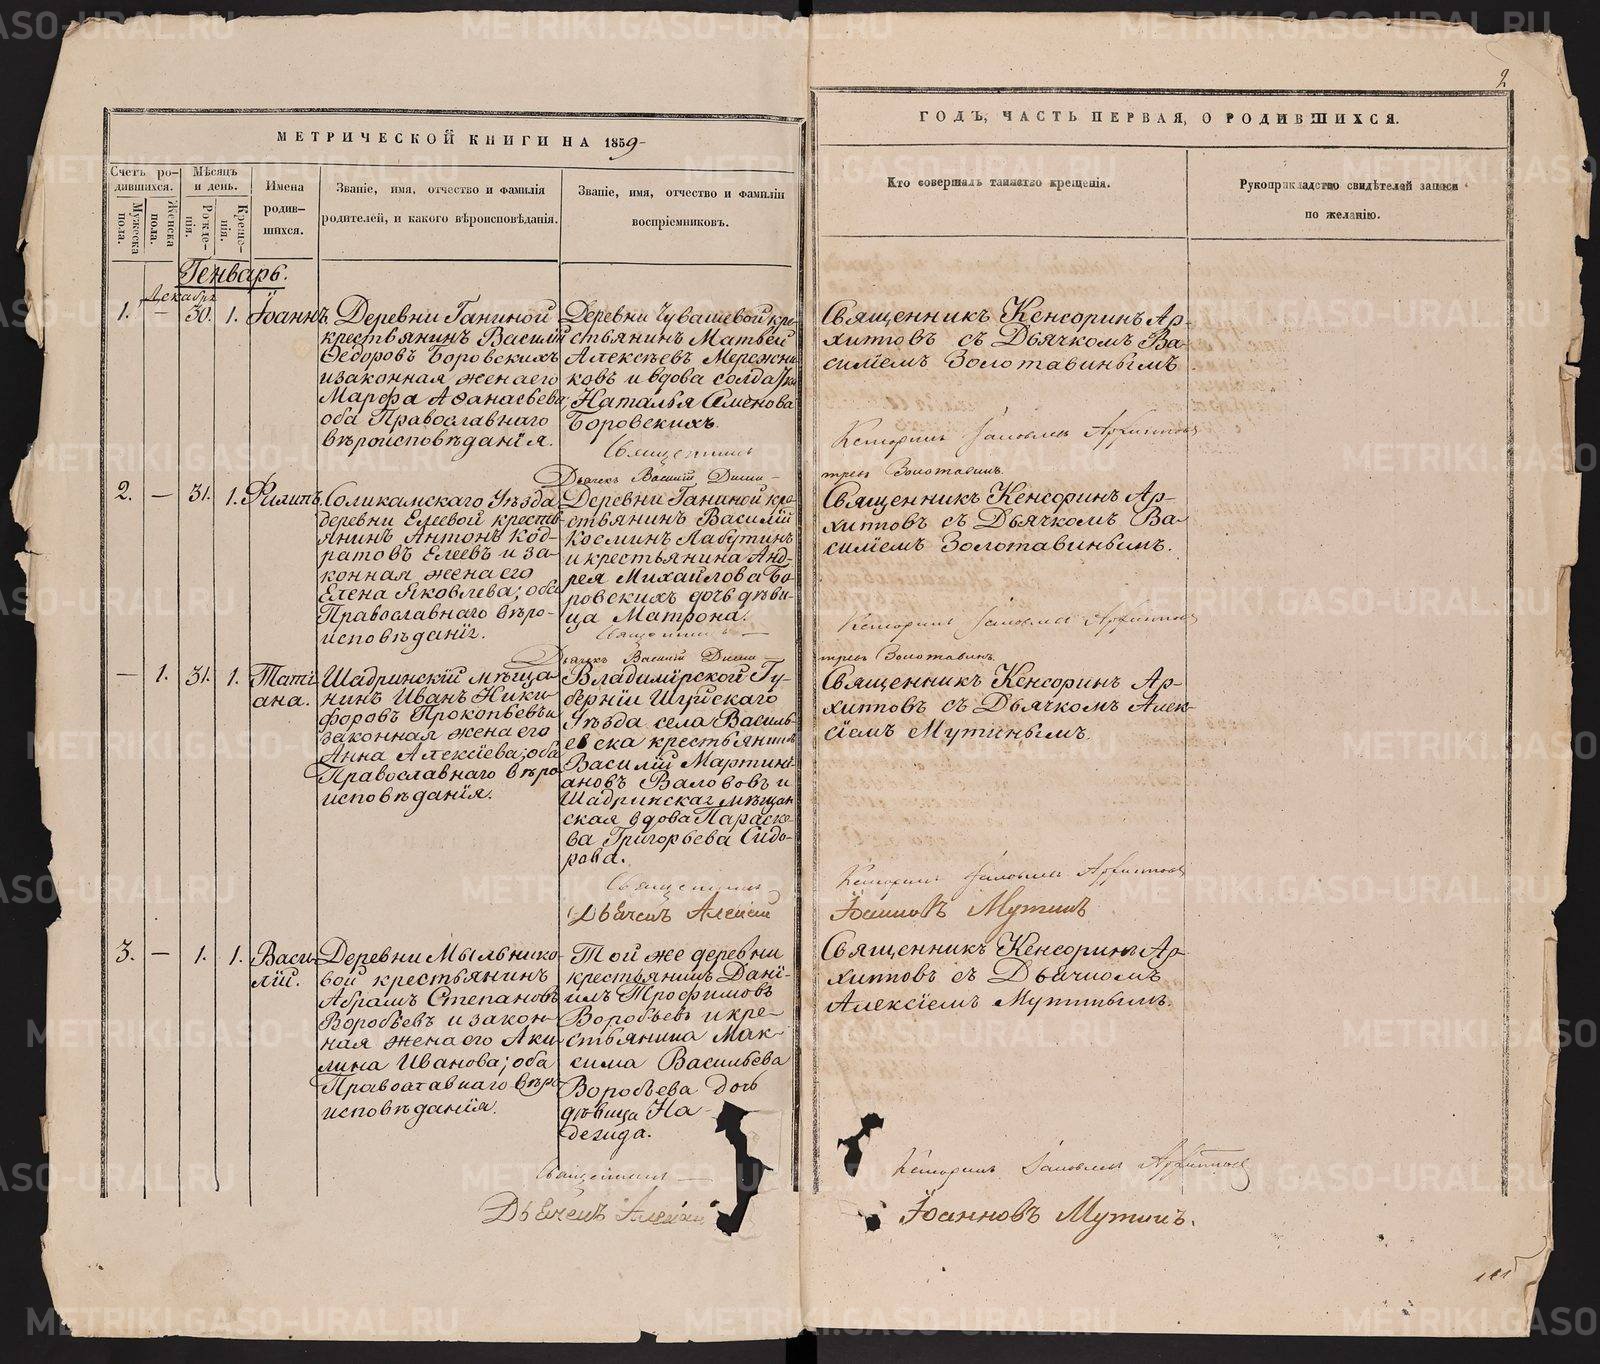 2
МЕТРИЧЕСКОЙ КНИГИ НА 1859
ГОДЪ, ЧАСТЬ ПЕРВАЯ, О РОДИВШИХСЯ.
Счетъ ро-
дившихся.
Мужеска
пола.
Женска
пола.
Мѣсяцъ
и день.
Рожде-
нія.
Креще-
нія.
Имена
родив-
шихся.
Званіе, имя, отчество и фамилія
родителей, и какого вѣроисповѣданія.
Званіе, имя, отчество и фамиліи
воспріемниковъ.
Кто совершалъ таинство крещенія.
Рукоприкладство свидѣтелей записи
по желанію.
Генварь.
Декабря
1. — 30. 1. Іоаннъ.
Деревни Ганиной
крестьянинъ Василій
Ѳедоровъ Боровскихъ
и законная жена его
Марѳа Аѳанасьева;
оба Православнаго
вѣроисповѣданія.
Деревни Чувашевой кре-
стьянинъ Матвей
Алексѣевъ Мережни
ковъ и вдова солдатка
Наталья Семенова
Боровскихъ.
Священникъ Кенсоринъ Ар-
хиповъ съ Дьячкомъ Ва-
силіемъ Золотавинымъ
Священникъ
Дьячекъ Василій Дими-
тріевъ Золотавинъ.
2. — 31. 1. Филипъ.
Соликамскаго Уѣзда
деревни Елевой кресть-
янинъ Антонъ Код-
ратовъ Елеевъ и за-
конная жена его
Елена Яковлева; оба
Православнаго вѣро-
исповѣданія.
Деревни Ганиной кре-
стьянинъ Василій
Косминъ Лабутинъ
и крестьянина Анд-
рея Михайлова Бо-
ровскихъ дочь дѣви-
ца Матрона.
Священникъ Кенсоринъ Ар-
хиповъ съ Дьячкомъ Ва-
силіемъ Золотавинымъ.
Священникъ —
Дьячекъ Василій Дими-
тріевъ Золотавинъ.
— 1. 31. 1. Таті-
ана.
Шадринскій мѣща-
нинъ Иванъ Ники-
форовъ Прокопьевъ и
законная жена его
Анна Алексіева; оба
Православнаго вѣро
исповѣданія.
Владимірской Гу-
берніи Шуйскаго
Уѣзда села Василь-
евска крестьянинъ
Василій Мартині-
ановъ Валововъ и
Шадринская мѣщан
ская вдова Параске-
ва Григорьева Сидо-
рова.
Священникъ Кенсоринъ Ар-
хиповъ съ Дьячкомъ Алек-
сіемъ Мутинымъ.
Священникъ
Дьячекъ Алексій
Іоанновъ Мутинъ
3. — 1. 1. Васи-
лій.
Деревни Мыльнико-
вой крестьянинъ
Абрамъ Степановъ
Воробьевъ и закон-
ная жена его Аки
лина Иванова; оба
Православнаго вѣро
исповѣданія.
Той же деревни
крестьянинъ Дані-
илъ Трофимовъ
Воробьевъ и кре-
стьянина Мак-
сима Васильева
Воробьева дочь
дѣвица На-
дежда.
Священникъ Кенсоринъ Ар-
хиповъ съ Дьячкомъ
Алексіемъ Мутинымъ.
Священникъ —
Дьячекъ Алексій
Іоанновъ Мутинъ.
METRIKI.GASO-URAL.RU